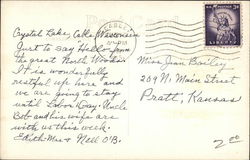 Crystal Lake, Cable Wisconsin
Just to say Hello from
the great North Woods.
It is wonderfully
restful up here and
we are going to stay
until Labor Day. Uncle
Bob and his wife are
with us this week.
Edith Mae & Nell O'B.
CABLE
PM
U.S. POSTAGE
3¢
LIBERTY
Miss Jean Bailey
209 N. Main Street
Pratt, Kansas
2.00